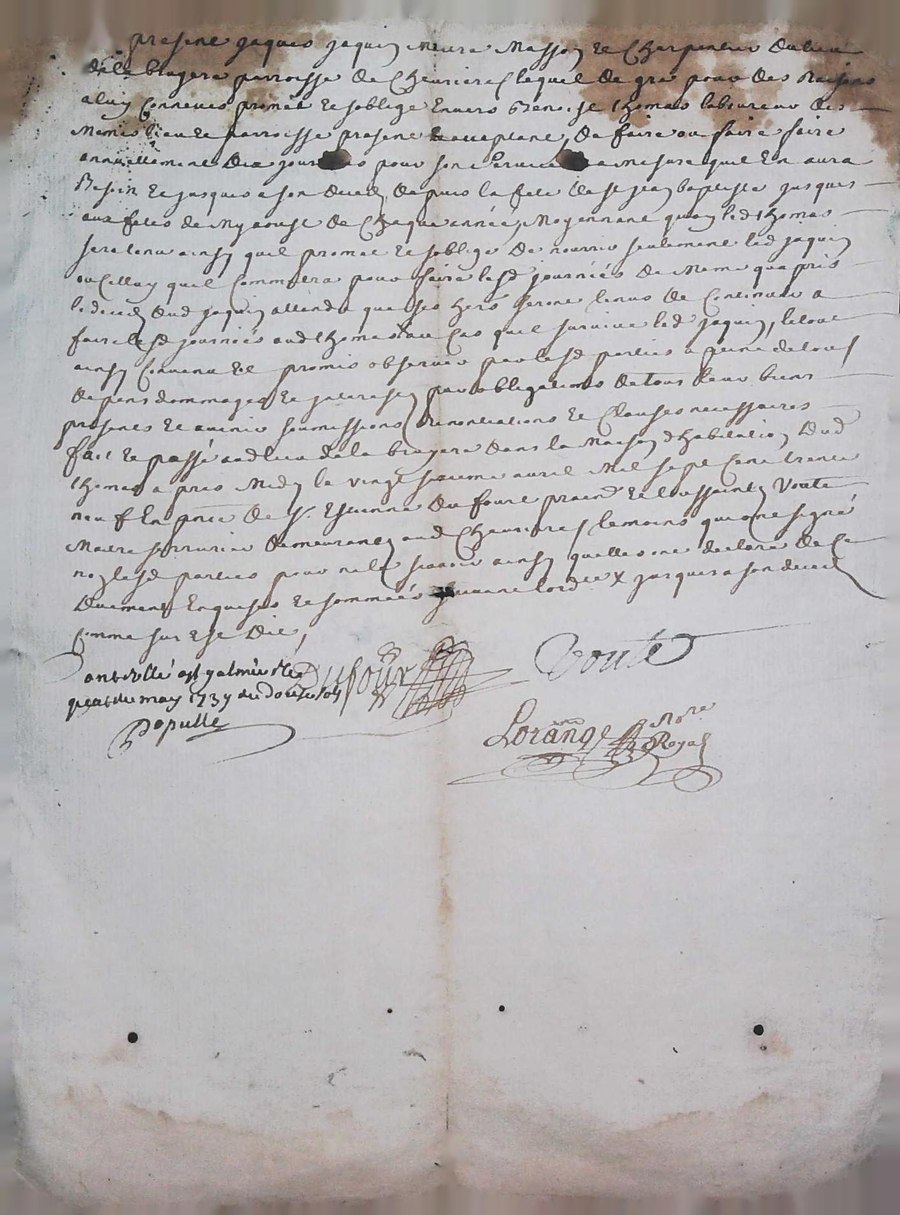 presant jaques jaquin meure masson et charpentier du lieu
de la brugera parroisse de Chevrieres lequel de gré pour des raisons
a luy conneues promet et soblige envers benoist thomas laboureur des
memes lieu et parroisse present et acceptant, de faire ou faire faire
annuellement dix jour pour son service a mesure quil en aura
besoin et jusques a son deced depuis la fete de st jean baptiste jusques
aux fetes de my aoust de chaque année, moyennant quoy led thomas
sera tenu ainsy quil promet et soblige de nourrir seulement led jaquin
ou celluy quil commettra pour faire lesd journées de meme quapris
le deced dud jaquin attendu que ses heros seront tenus de continuer a
faire lesd journées aud thomas au cas quil survive led jaquin, letout
ainsy convenu et promis observer par lesd parties a peine de tous
depens dommages et interests par obligations de tous leur biens
presents et avenir soumissions renontiations et clauses necessaires
fait et passé aud lieu de la brugera dans la maison dhabitation dud
thomas apres midy le vingt avril mil sept cent trente
neuf en pnce de sr. Estienne Dufour et toussaint Voute
maitre serrurier demeurant aud Chevrieres temoins qui ont signé
non lesd parties pour ne le scavoir ainsy quelles ont declaré de ce
duement enquises et sommées suivant lord. et jusques a son deced
comme sur est dit,
Dufour Voute
controllé a st galmier le
may 1739 douze sols
Populle
Lorange nore
Royal